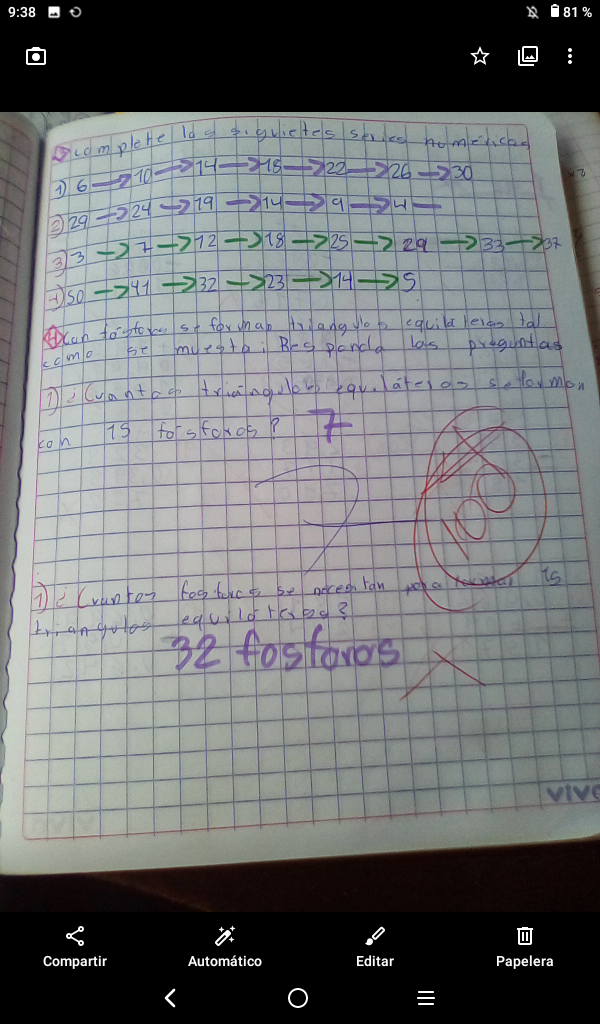 9:38
81 %
complete las siguietes series numéricas
1) 6 → 10 → 14 → 18 → 22 → 26 → 30
2) 29 → 24 → 19 → 14 → 9 → 4 —
3) 3 → 7 → 12 → 18 → 25 → 29 → 33 → 37
4) 50 → 41 → 32 → 23 → 14 → 5
con fósforo se forman triangulos equiláteros tal
como se muesta; Responda las preguntas
1) ¿Cuantos triángulos equiláteros se forman
con 15 fósforos? 7
100
1) ¿Cuantos fosforos se necesitan para formar 15
triangulos equilátersо?
32 fosforos
vivo
Compartir
Automático
Editar
Papelera